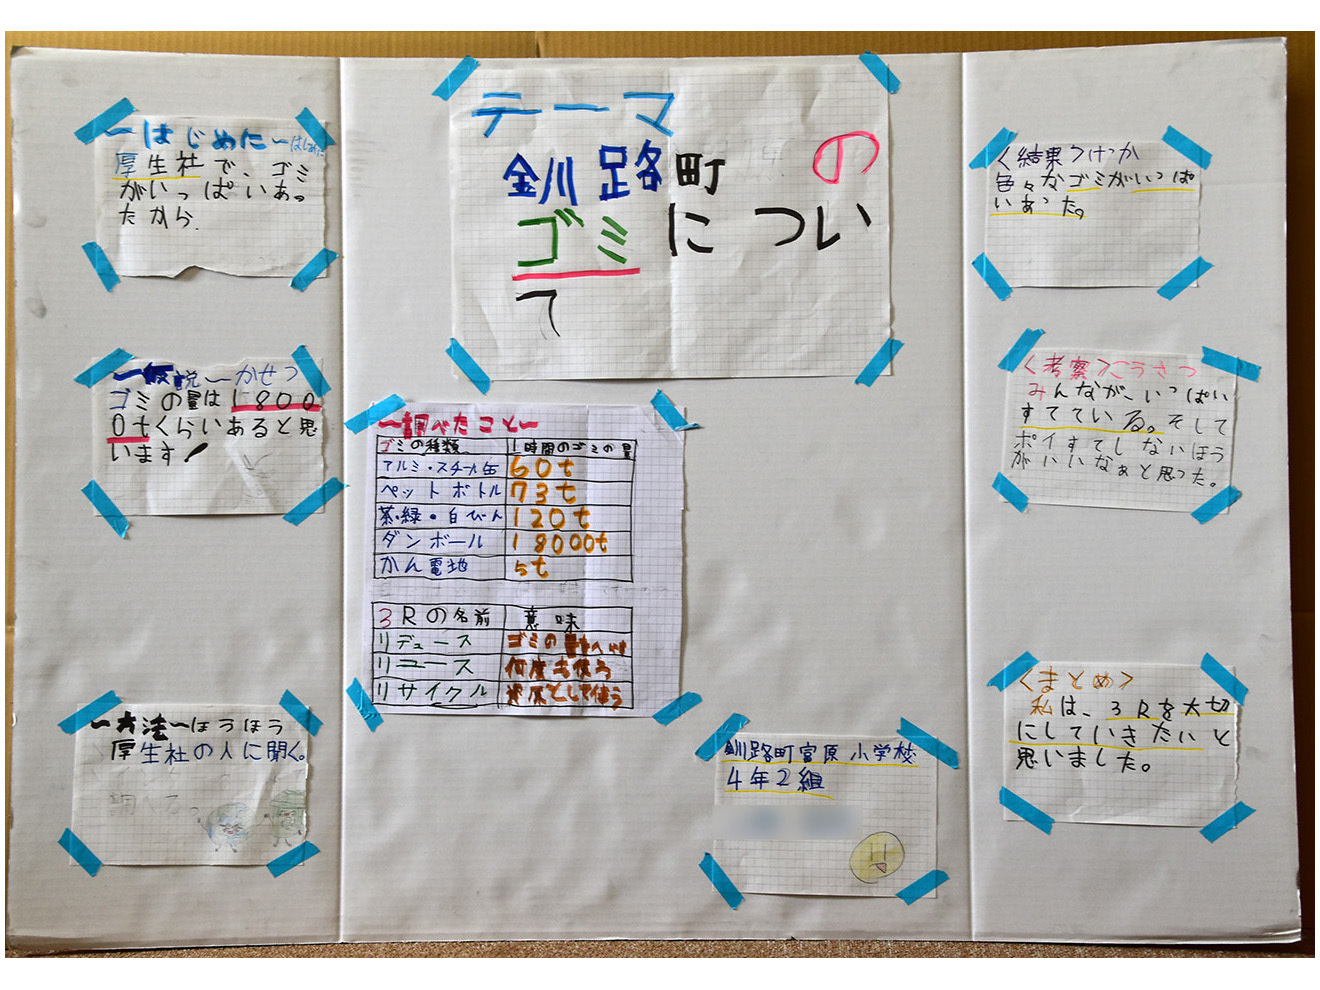 ～はじめに～はじめに
厚生社で、ゴミ
がいっぱいあっ
たから.
～仮説～かせつ
ゴミの量は1800
0tくらいあると思
います!
～方法～ほうほう
厚生社の人に聞く。
調べる。
テーマ
釧路町の
ゴミについ
て
～調べたこと～
ゴミの種類 1時間のゴミの量
アルミ・スチール缶 60t
ペットボトル 73t
茶・緑・白びん 120t
ダンボール 18000t
かん電地 5t
3Rの名前 意味
リデュース ゴミの
リユース 何度も使う
リサイクル としてに使う
釧路町富原小学校
4年2組
<結果>けっか
色々なゴミがいっぱ
いあった。
<考察>こうさつ
みんなが、いっぱい
すてている。そして
ポイすてしないほう
がいいなぁと思った。
<まとめ>
私は、3Rを大切
にしていきたいと
思いました。